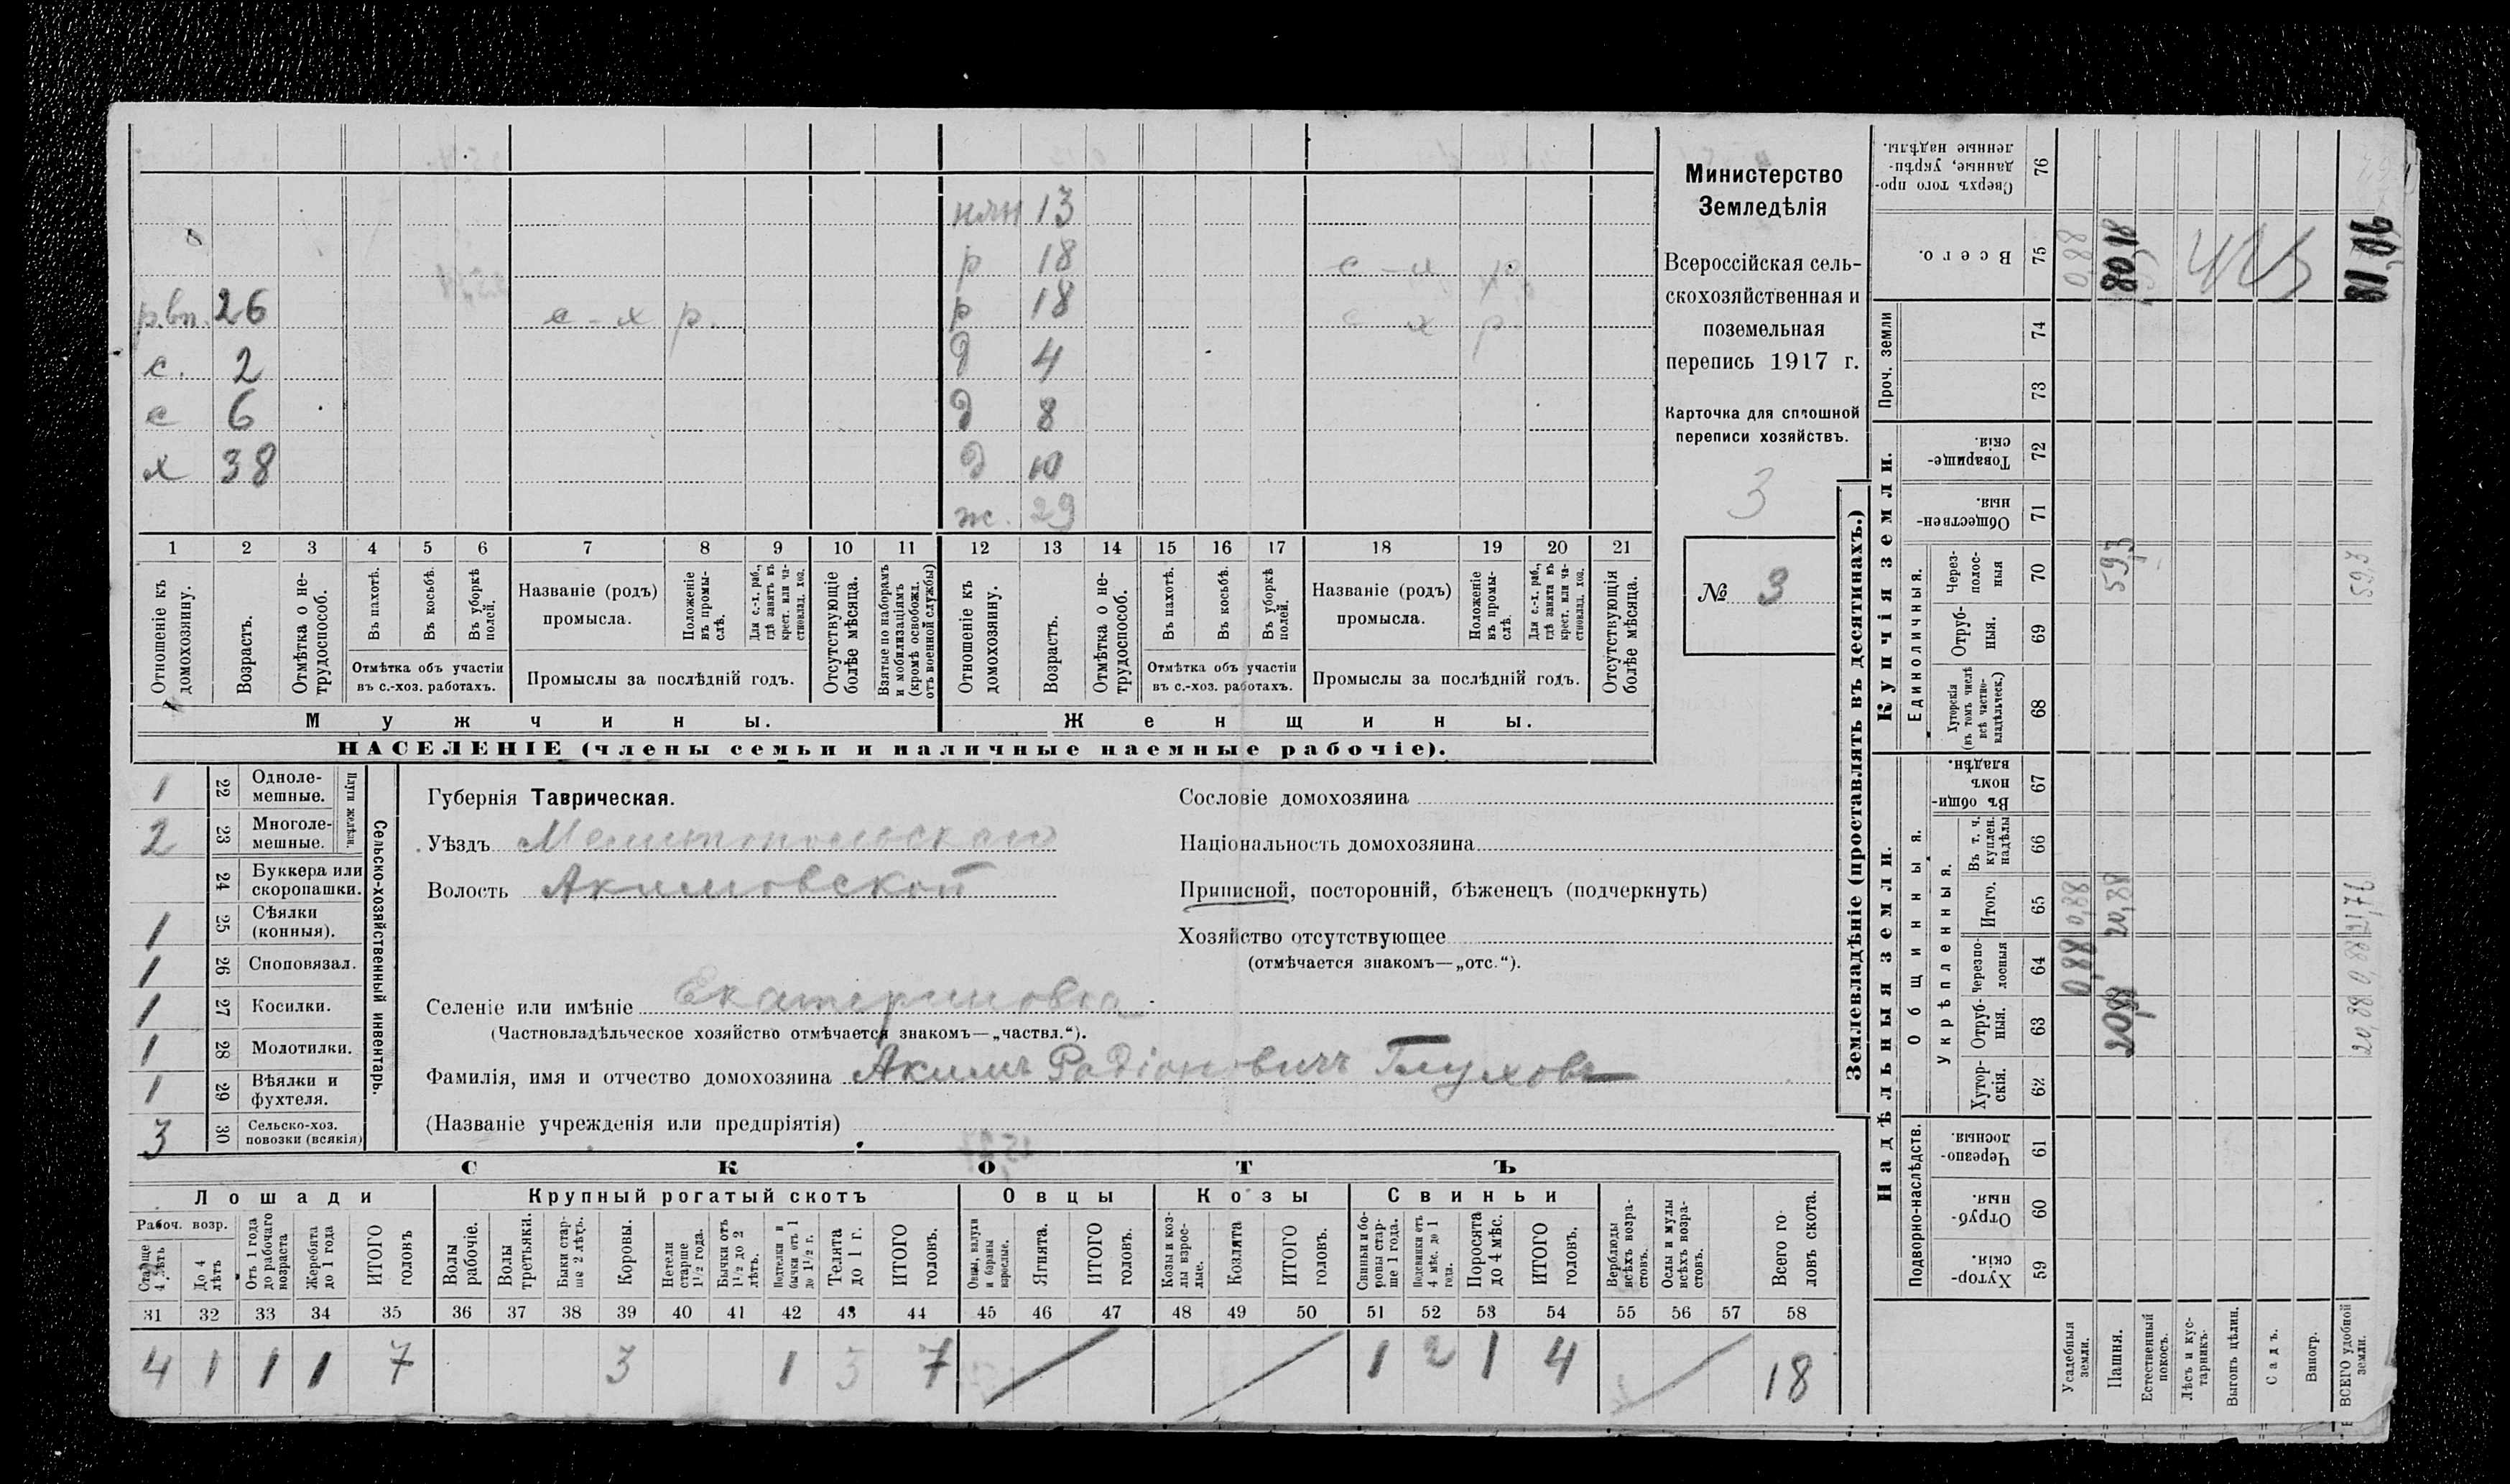 нян 13
р 18 с-х р.
р.вп. 26 с-х р. р 18 с х р.
с. 2 д 4
с 6 д 8
х 38 д 10
ж. 29
1 2 3 4 5 6 7 8 9 10 11 12 13 14 15 16 17 18 19 20 21
Отношеніе къ домохозяину.
Возрастъ.
Отмѣтка о не-
трудоспособ.
Въ пахотѣ.
Въ косьбѣ.
Въ уборкѣ
полей.
Отмѣтка объ участіи
въ с.-хоз. работахъ.
Названіе (родъ)
промысла.
Положеніе
въ промы-
слѣ.
Для с.-х. раб.,
гдѣ занятъ въ
крест. или ча-
стновлад. хоз.
Промыслы за послѣдній годъ.
Отсутствующіе
болѣе мѣсяца.
Взятые по наборамъ
и мобилизаціямъ
(кромѣ освобожд.
отъ военной службы)
Отношеніе къ
домохозяину.
Возрастъ.
Отмѣтка о не-
трудоспособ.
Въ пахотѣ.
Въ косьбѣ.
Въ уборкѣ
полей.
Отмѣтка объ участіи
въ с.-хоз. работахъ.
Названіе (родъ)
промысла.
Положеніе
въ промы-
слѣ.
Для с.-х. раб.,
гдѣ занята въ
крест. или ча-
стновлад. хоз.
Промыслы за послѣдній годъ.
Отсутствующія
болѣе мѣсяца.
Мужчины.
Женщины.
НАСЕЛЕНІЕ (члены семьи и наличные наемные рабочіе).
Министерство
Земледѣлія
Всероссійская сель-
скохозяйственная и
поземельная
перепись 1917 г.
Карточка для сплошной
переписи хозяйствъ.
3
№ 3
1 22 Одноле-
мешные.
2 23 Многоле-
мешные.
Плуги желѣзн.
24 Буккера или
скоропашки.
1 25 Сѣялки
(конныя).
1 26 Сноповязал.
1 27 Косилки.
1 28 Молотилки.
1 29 Вѣялки и
фухтеля.
3 30 Сельско-хоз.
повозки (всякія)
Сельско-хозяйственный инвентарь.
Губернія Таврическая.
Уѣздъ Мелитопольскаго
Волость Акимовской
Сословіе домохозяина
Національность домохозяина
Приписной, посторонній, бѣженецъ (подчеркнуть)
Хозяйство отсутствующее
(отмѣчается знакомъ—„отс.“).
Селеніе или имѣніе Екатериновка
(Частновладѣльческое хозяйство отмѣчается знакомъ—„частвл.“).
Фамилія, имя и отчество домохозяина Акимъ Радіоновичъ Глуховъ
(Названіе учрежденія или предпріятія)
СКОТЪ
Лошади
Крупный рогатый скотъ
Овцы
Козы
Свиньи
Рабоч. возр.
Старше
4 лѣтъ
До 4
лѣтъ
Отъ 1 года
до рабочаго
возраста
Жеребята
до 1 года
ИТОГО
головъ
Волы
рабочіе.
Волы
третьяки.
Быки стар-
ше 2 лѣтъ.
Коровы.
Нетели
старше
1½ года.
Бычки отъ
1½ до 2
лѣтъ.
Подтелки и
бычки отъ 1
до 1½ г.
Телята
до 1 г.
ИТОГО
головъ.
Овцы, валухи
и бараны
взрослые.
Ягнята.
ИТОГО
головъ.
Козы и коз-
лы взрос-
лые.
Козлята
ИТОГО
головъ.
Свиньи и бо-
ровы стар-
ше 1 года.
Подсвинки отъ
4 мѣс. до 1
года.
Поросята
до 4 мѣс.
ИТОГО
головъ.
Верблюды
всѣхъ возра-
стовъ.
Ослы и мулы
всѣхъ возра-
стовъ.
Всего го-
ловъ скота.
31 32 33 34 35 36 37 38 39 40 41 42 43 44 45 46 47 48 49 50 51 52 53 54 55 56 57 58
4 1 1 1 7 3 1 3 7 1 2 1 4 18
Землевладѣніе (проставлять въ десятинахъ.)
Надѣльныя земли.
Купчія земли.
Проч. земли
Подворно-наслѣдств.
Общинныя.
Укрѣпленныя.
Единоличныя.
Хутор-
скія. 59
Отруб-
ныя. 60
Черезпо-
лосныя. 61
Хутор-
скія. 62
Отруб-
ныя. 63
Черезпо-
лосныя 64
Итого. 65
Въ т. ч.
куплен.
надѣлы 66
Въ общин-
номъ
владѣн. 67
Хуторскія
(въ томъ числѣ
всѣ частно-
владѣльческ.) 68
Отруб-
ныя. 69
Через-
полос-
ныя 70
Обществен-
ныя. 71
Товарище-
скія. 72
73
74
Всего. 75
Сверхъ того про-
данные, укрѣп-
ленные надѣлы. 76
Усадебныя
земли. 0,88 0,88 0,88
Пашня. 20,88 20,88 59,3 80,18
Естественный
покосъ.
Лѣсъ и кус-
тарникъ.
Выгонъ цѣлин.
Садъ.
Виногр.
ВСЕГО удобной
земли. 20,88 0,88 21,76 59,3 81,06